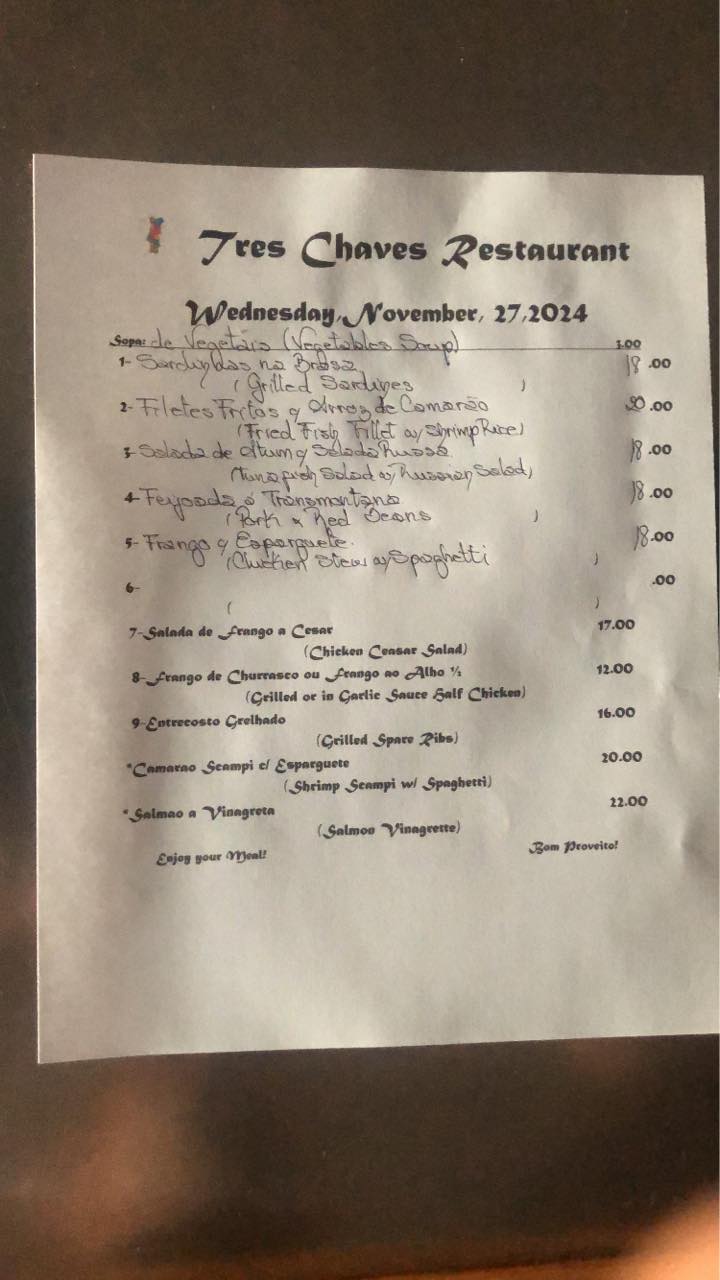 Tres Chaves Restaurant
Wednesday, November, 27,2024
Sopa: de Vegetais (Vegetables Soup) 3.00
1- Sardinhas na Brasa 18.00
( Grilled Sardines )
2- Filetes Fritos c/ Arroz de Camarão 20.00
(Fried Fish Fillet w/ Shrimp Rice)
3- Salada de Atum c/ Salada Russa 18.00
(Tuna fish Salad w/ Russian Salad)
4- Feijoada á Transmontana 18.00
( Pork & Red Beans )
5- Frango c/ Esparguete. 18.00
(Chicken Stew w/ Spaghetti )
6- .00
( )
7-Salada de Frango a Cesar 17.00
(Chicken Ceasar Salad)
8-Frango de Churrasco ou Frango ao Alho ½ 12.00
(Grilled or in Garlic Sauce Half Chicken)
9-Entrecosto Grelhado 16.00
(Grilled Spare Ribs)
*Camarao Scampi c/ Esparguete 20.00
(Shrimp Scampi w/ Spaghetti)
*Salmao a Vinagreta 22.00
(Salmon Vinagrette)
Enjoy your Meal! Bom Proveito!